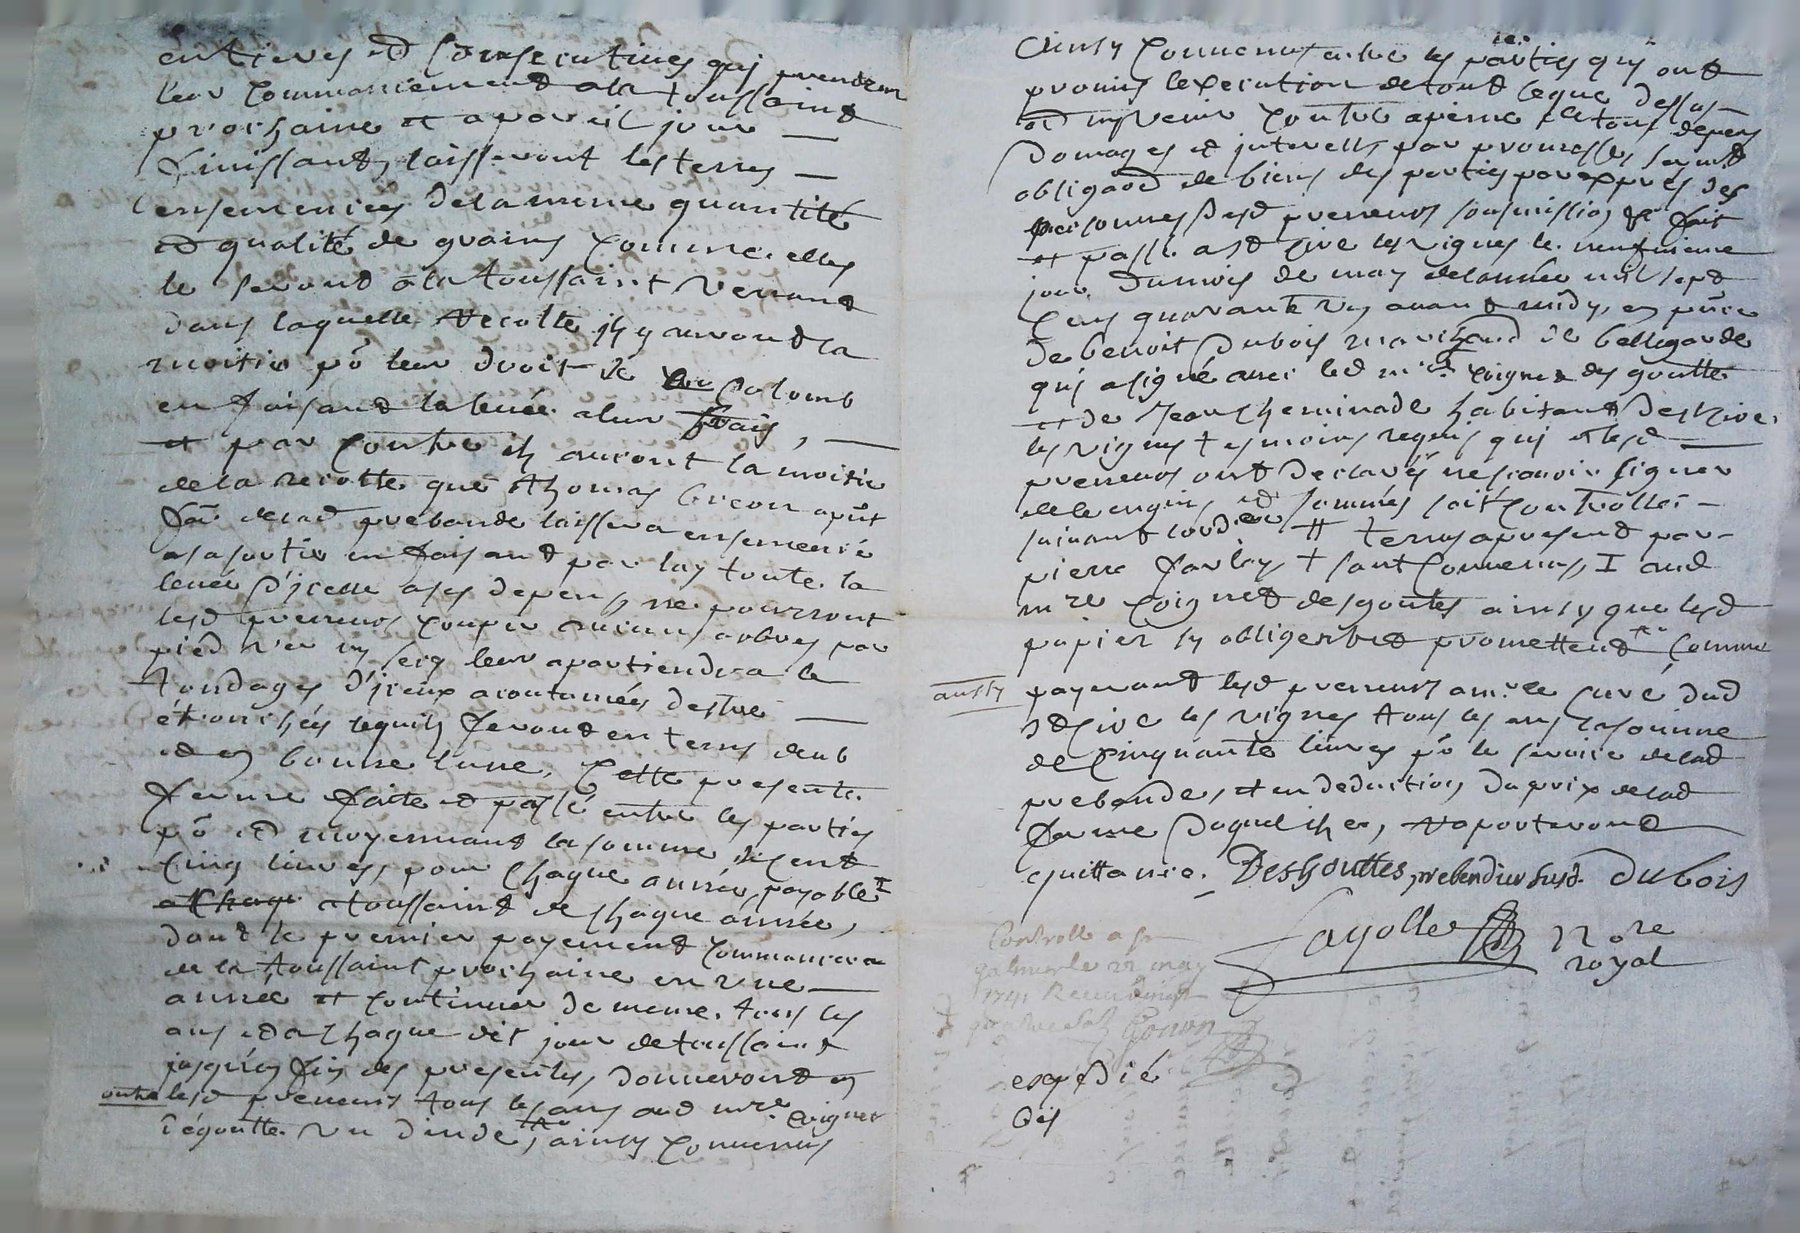 entieres et consecutives qui prendron
leur commancement a la toussaint
prochaine et a pareil jour —
finissant, laisseront les terres —
ensemencées de la meme quantité
et qualité de grains comme elles
le seront a la toussaint venant
dans laquelle recolte ils y auront la
moitié po leur droit de colomb
en faisant la levée a leur frais, —
et par contre ils auront la moitie
de la recolte que Thomas
de lad prebande laissera ensemencé
a sa sortie en faisant par luy toute la
levée d'icelle a ses depens, ne pourront
lesd preneurs couper aucuns arbres par
pied vert ny secq leur apartiendra le
tondages d'iceux acoutumées destre —
étronchées lequils feront en tems deub
et en bonne lune, cette presente
ferme faite et passé entre les parties
po et moyennant la somme de cent
cinq livres, pour chaque année payable I
a chaqe a toussaint de chaque année,
dont le premier payement commancera
de la toussaint prochaine en une —
année et continuer de meme tous les
ans et a chaque dit jour de toussaint
jusqu'en fin des presentes, donneront en
outre lesd preneurs tous les ans aud mre Coignet
Dégoutte un dinde, ainsy convenus
Ainsy convenus entre les parties qui ont
promis lexecution de tout ceque dessus —
et ny venir contre a peine de tous depens
domages et interests, par promesses, serment
obligaõn de biens des parties par exprès des
personnes desd preneurs soumission &ra fait
et passé a St Give les vignes le neufvieme
jour du mois de may de lannée mil sept
cens quarante un avant midy, en pñce
de Benoit Dubois marchand de bellegarde
qui a signé avec led mre Coignet des goutte
et de Jean Cheminade habitant de St Give
les vignes temoins requis qui et lesd —
preneurs ont declarés ne scavoir signer
de ce enquis et sommés soit controllé —
suivant lord.ce # tenus a present par
pierre + sont convenus, I aud
mre Coignet desgoutes ainsy que lesd
papier sy obligent et promettent &ra comme
aussy payeront lesd preneurs a mr le curé dud
St Give les vignes tous les ans la somme
de cinquante livres po le service de lad
prebande, et en deduction du prix de lad
ferme duquel ils en raporteront
quittance. Desgouttes, prebendier susd. Dubois
Fayolle Nore
royal
Controllé a St
galmier le 22 may
1741 Receu
expedié
bis